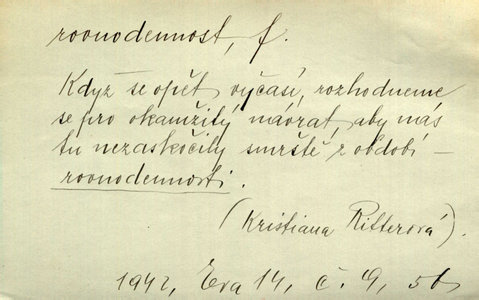 rovnodennost, f.
Když se opět vyčasí, rozhodneme
se pro okamžitý návrat, aby nás
tu nezaskočily smrště z období
rovnodennosti.
(Kristiana Ritterová).
1942, Eva 14, č. 9, 5b